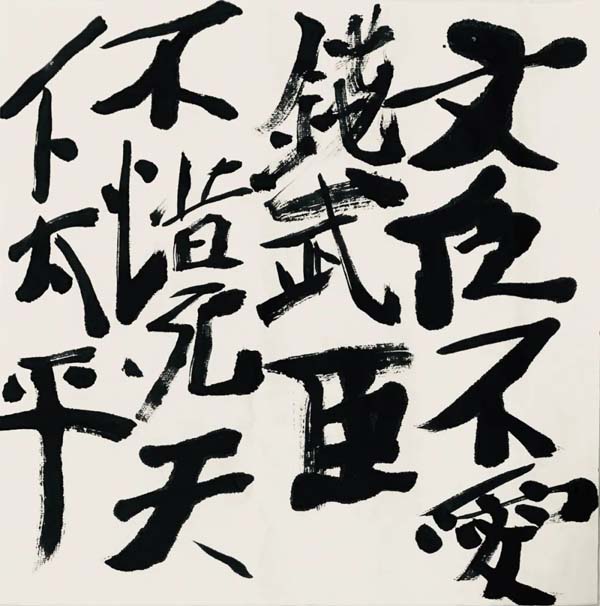 文臣不愛
錢武臣
不惜死天
下太平